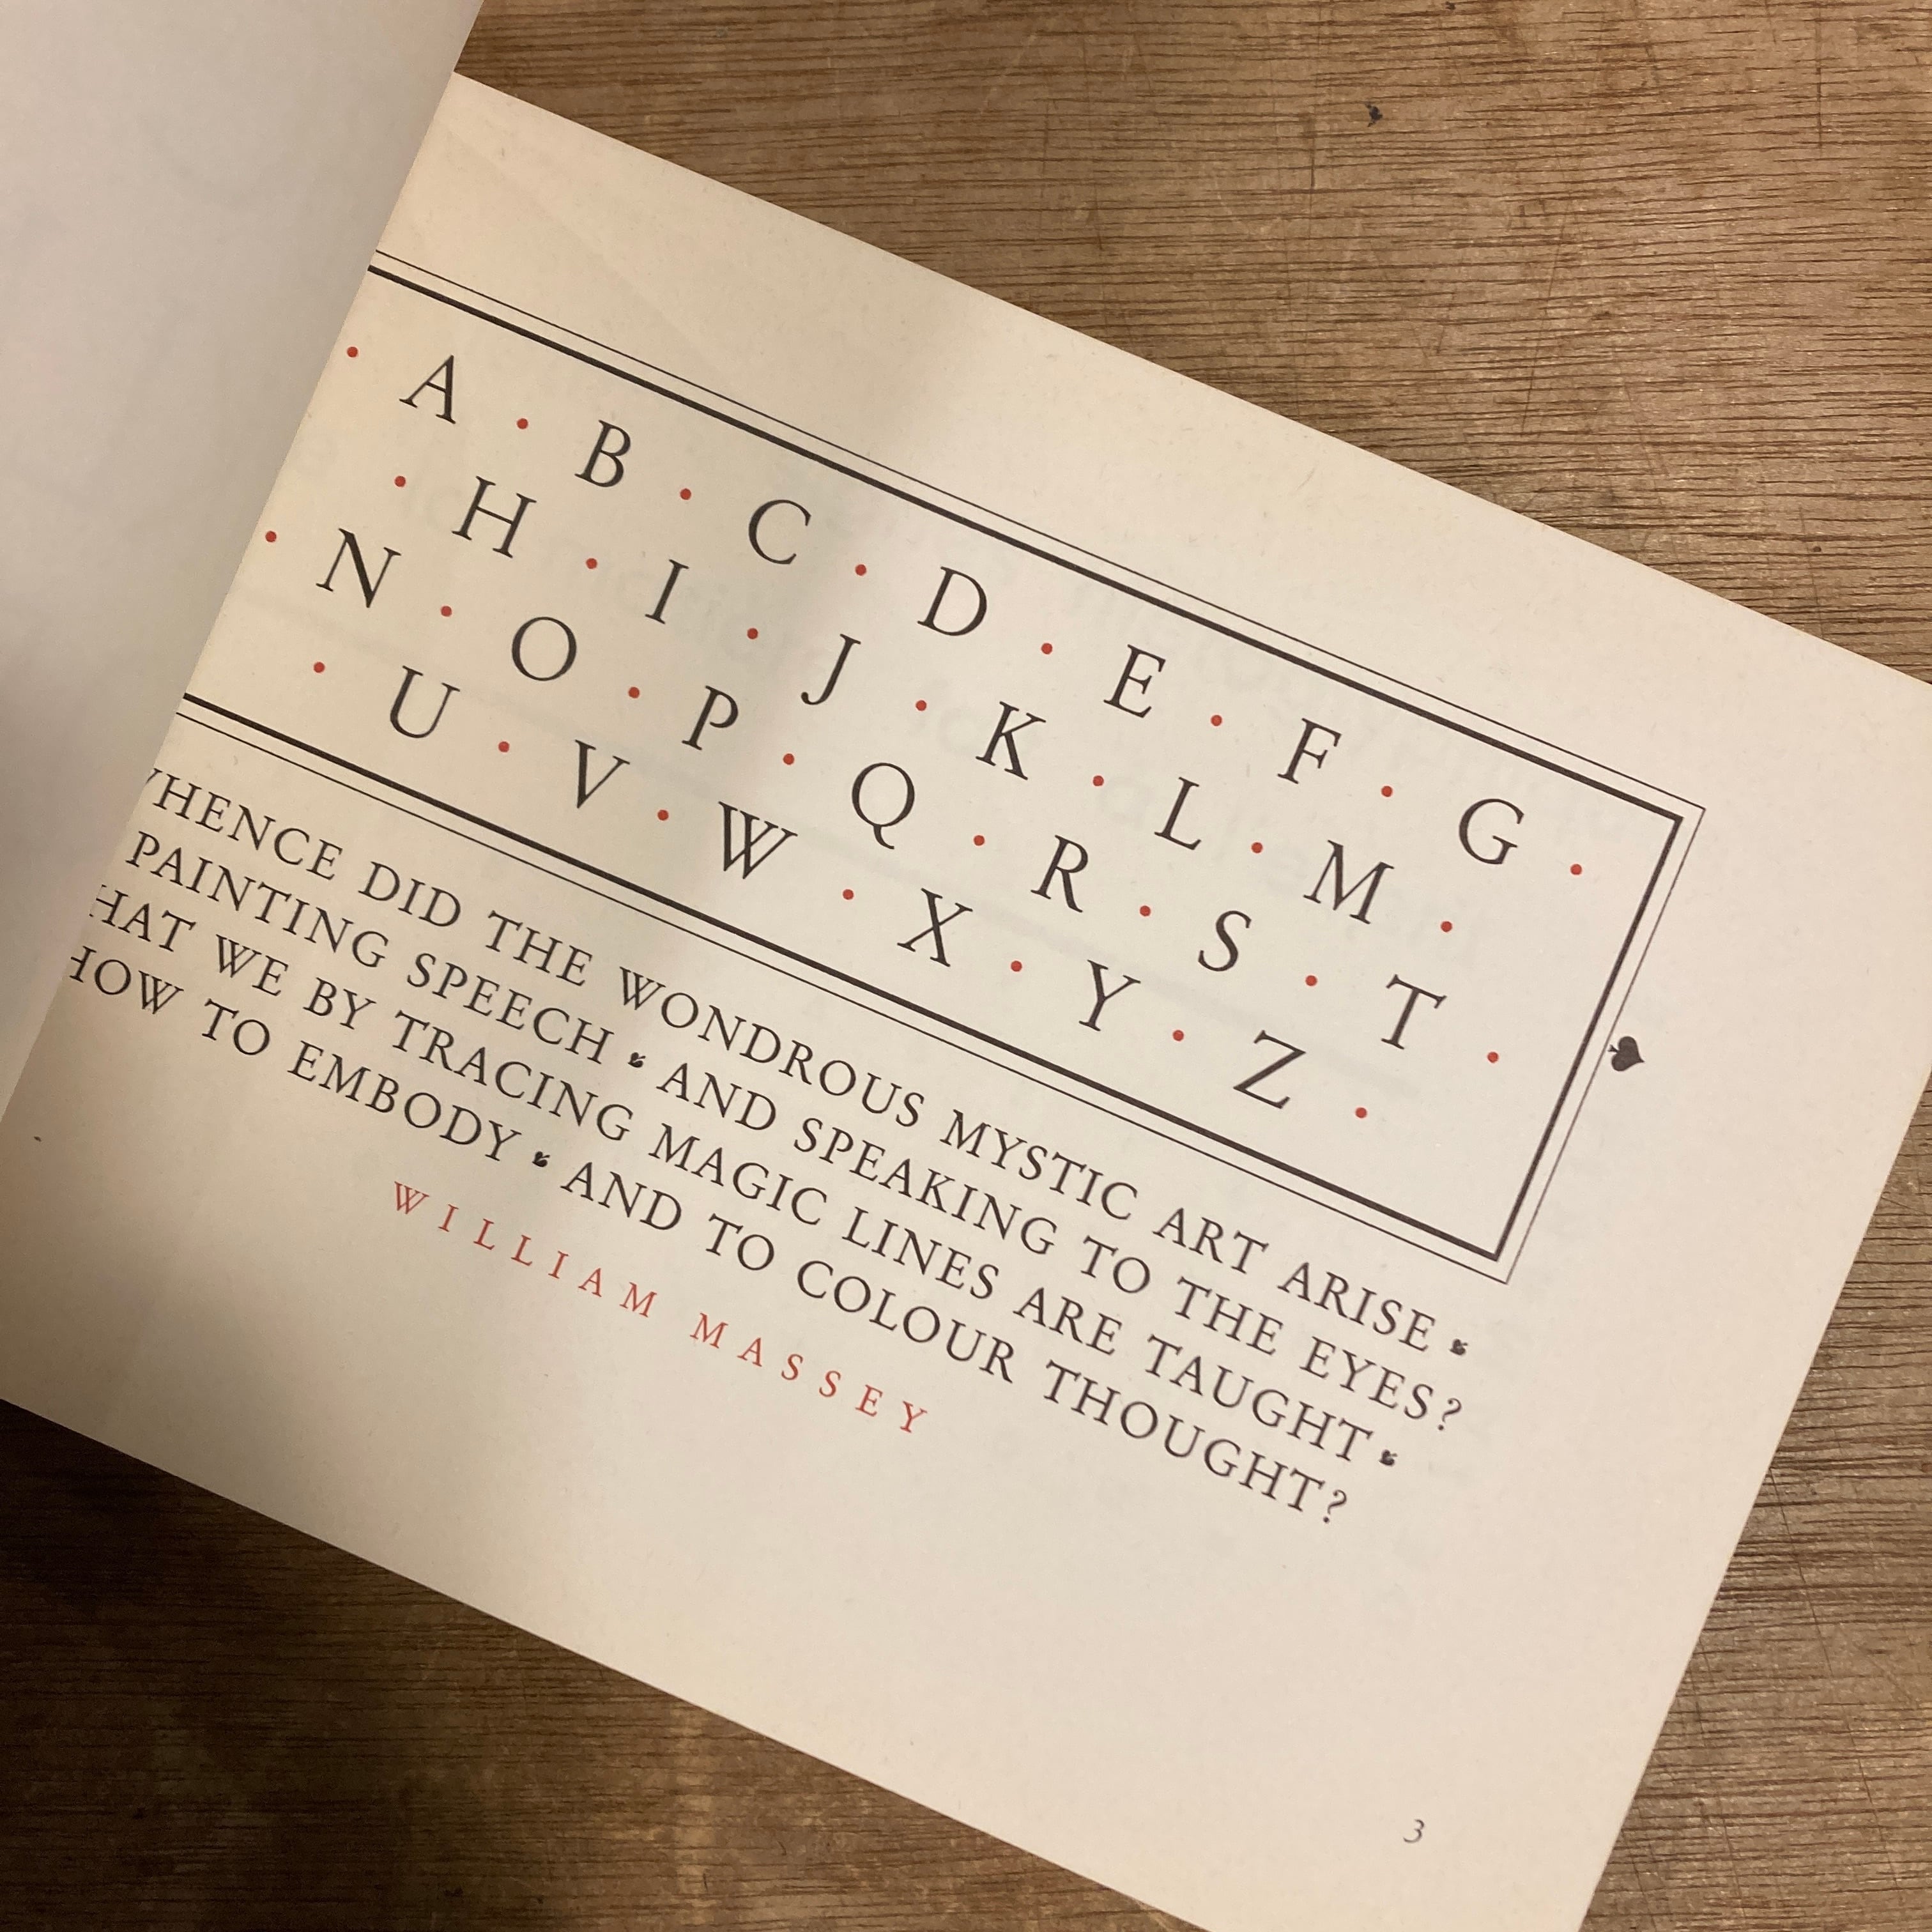 · A · B · C · D · E · F · G ·
· H · I · J · K · L · M ·
· N · O · P · Q · R · S · T ·
· U · V · W · X · Y · Z ·
HENCE DID THE WONDROUS MYSTIC ART ARISE
PAINTING SPEECH AND SPEAKING TO THE EYES?
HAT WE BY TRACING MAGIC LINES ARE TAUGHT
HOW TO EMBODY AND TO COLOUR THOUGHT?
WILLIAM MASSEY
3